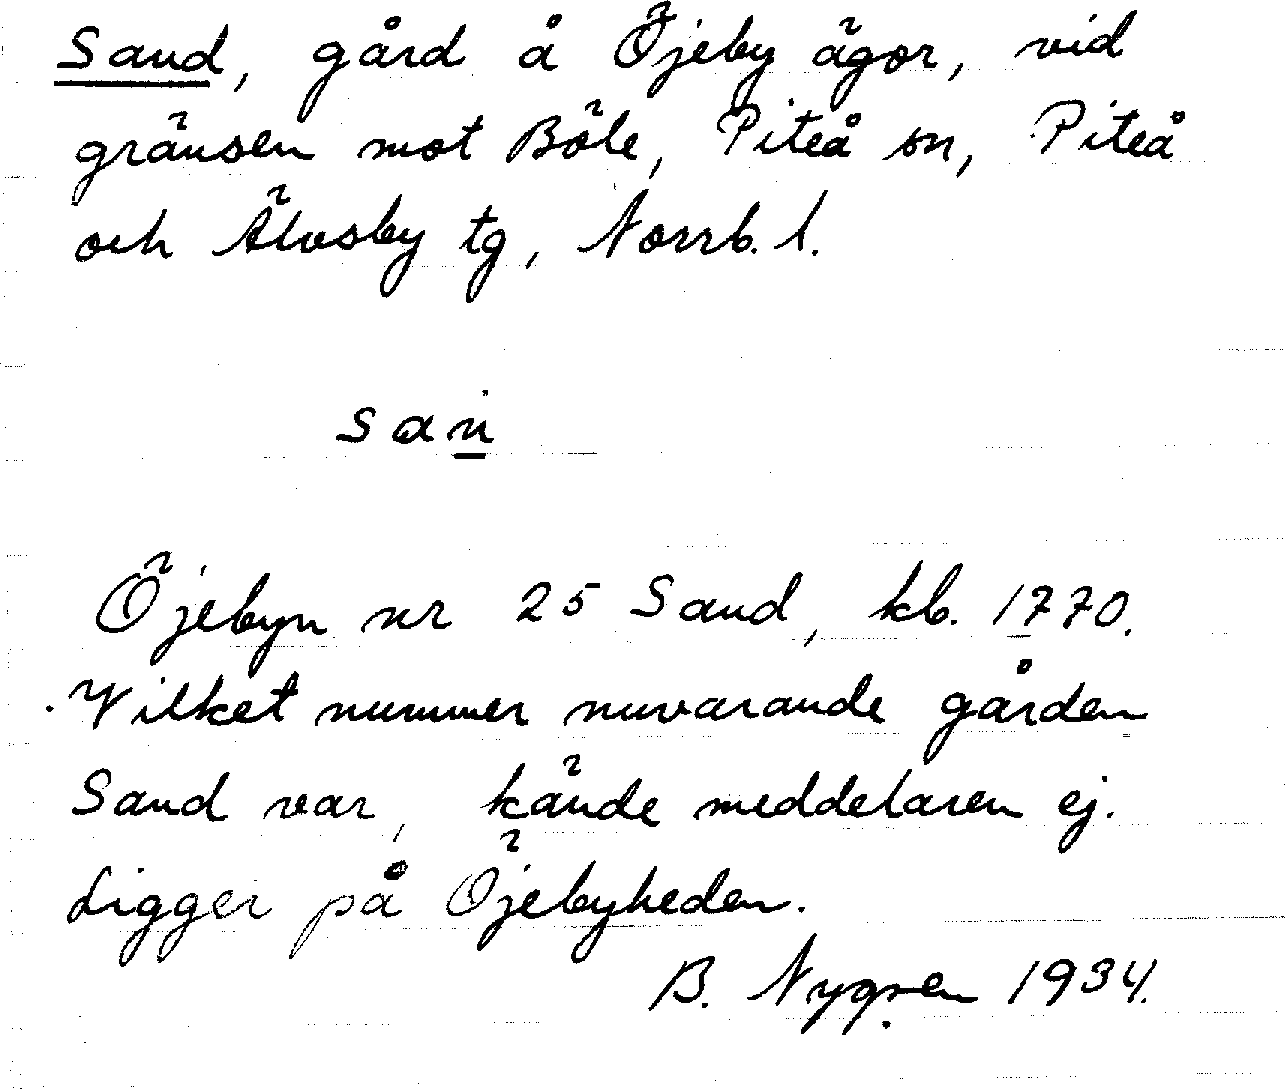 Sand, gård å Öjeby ägor, vid
gränsen mot Böle, Piteå sn, Piteå
och Älvsby tg, Norrb. l.
saṅ̲
Öjebyn nr 25 Sand, kb. 1770.
Vilket nummer nuvarande gården
Sand var, kände meddelaren ej.
Ligger på Öjebyheden.
B. Nygren 1934.